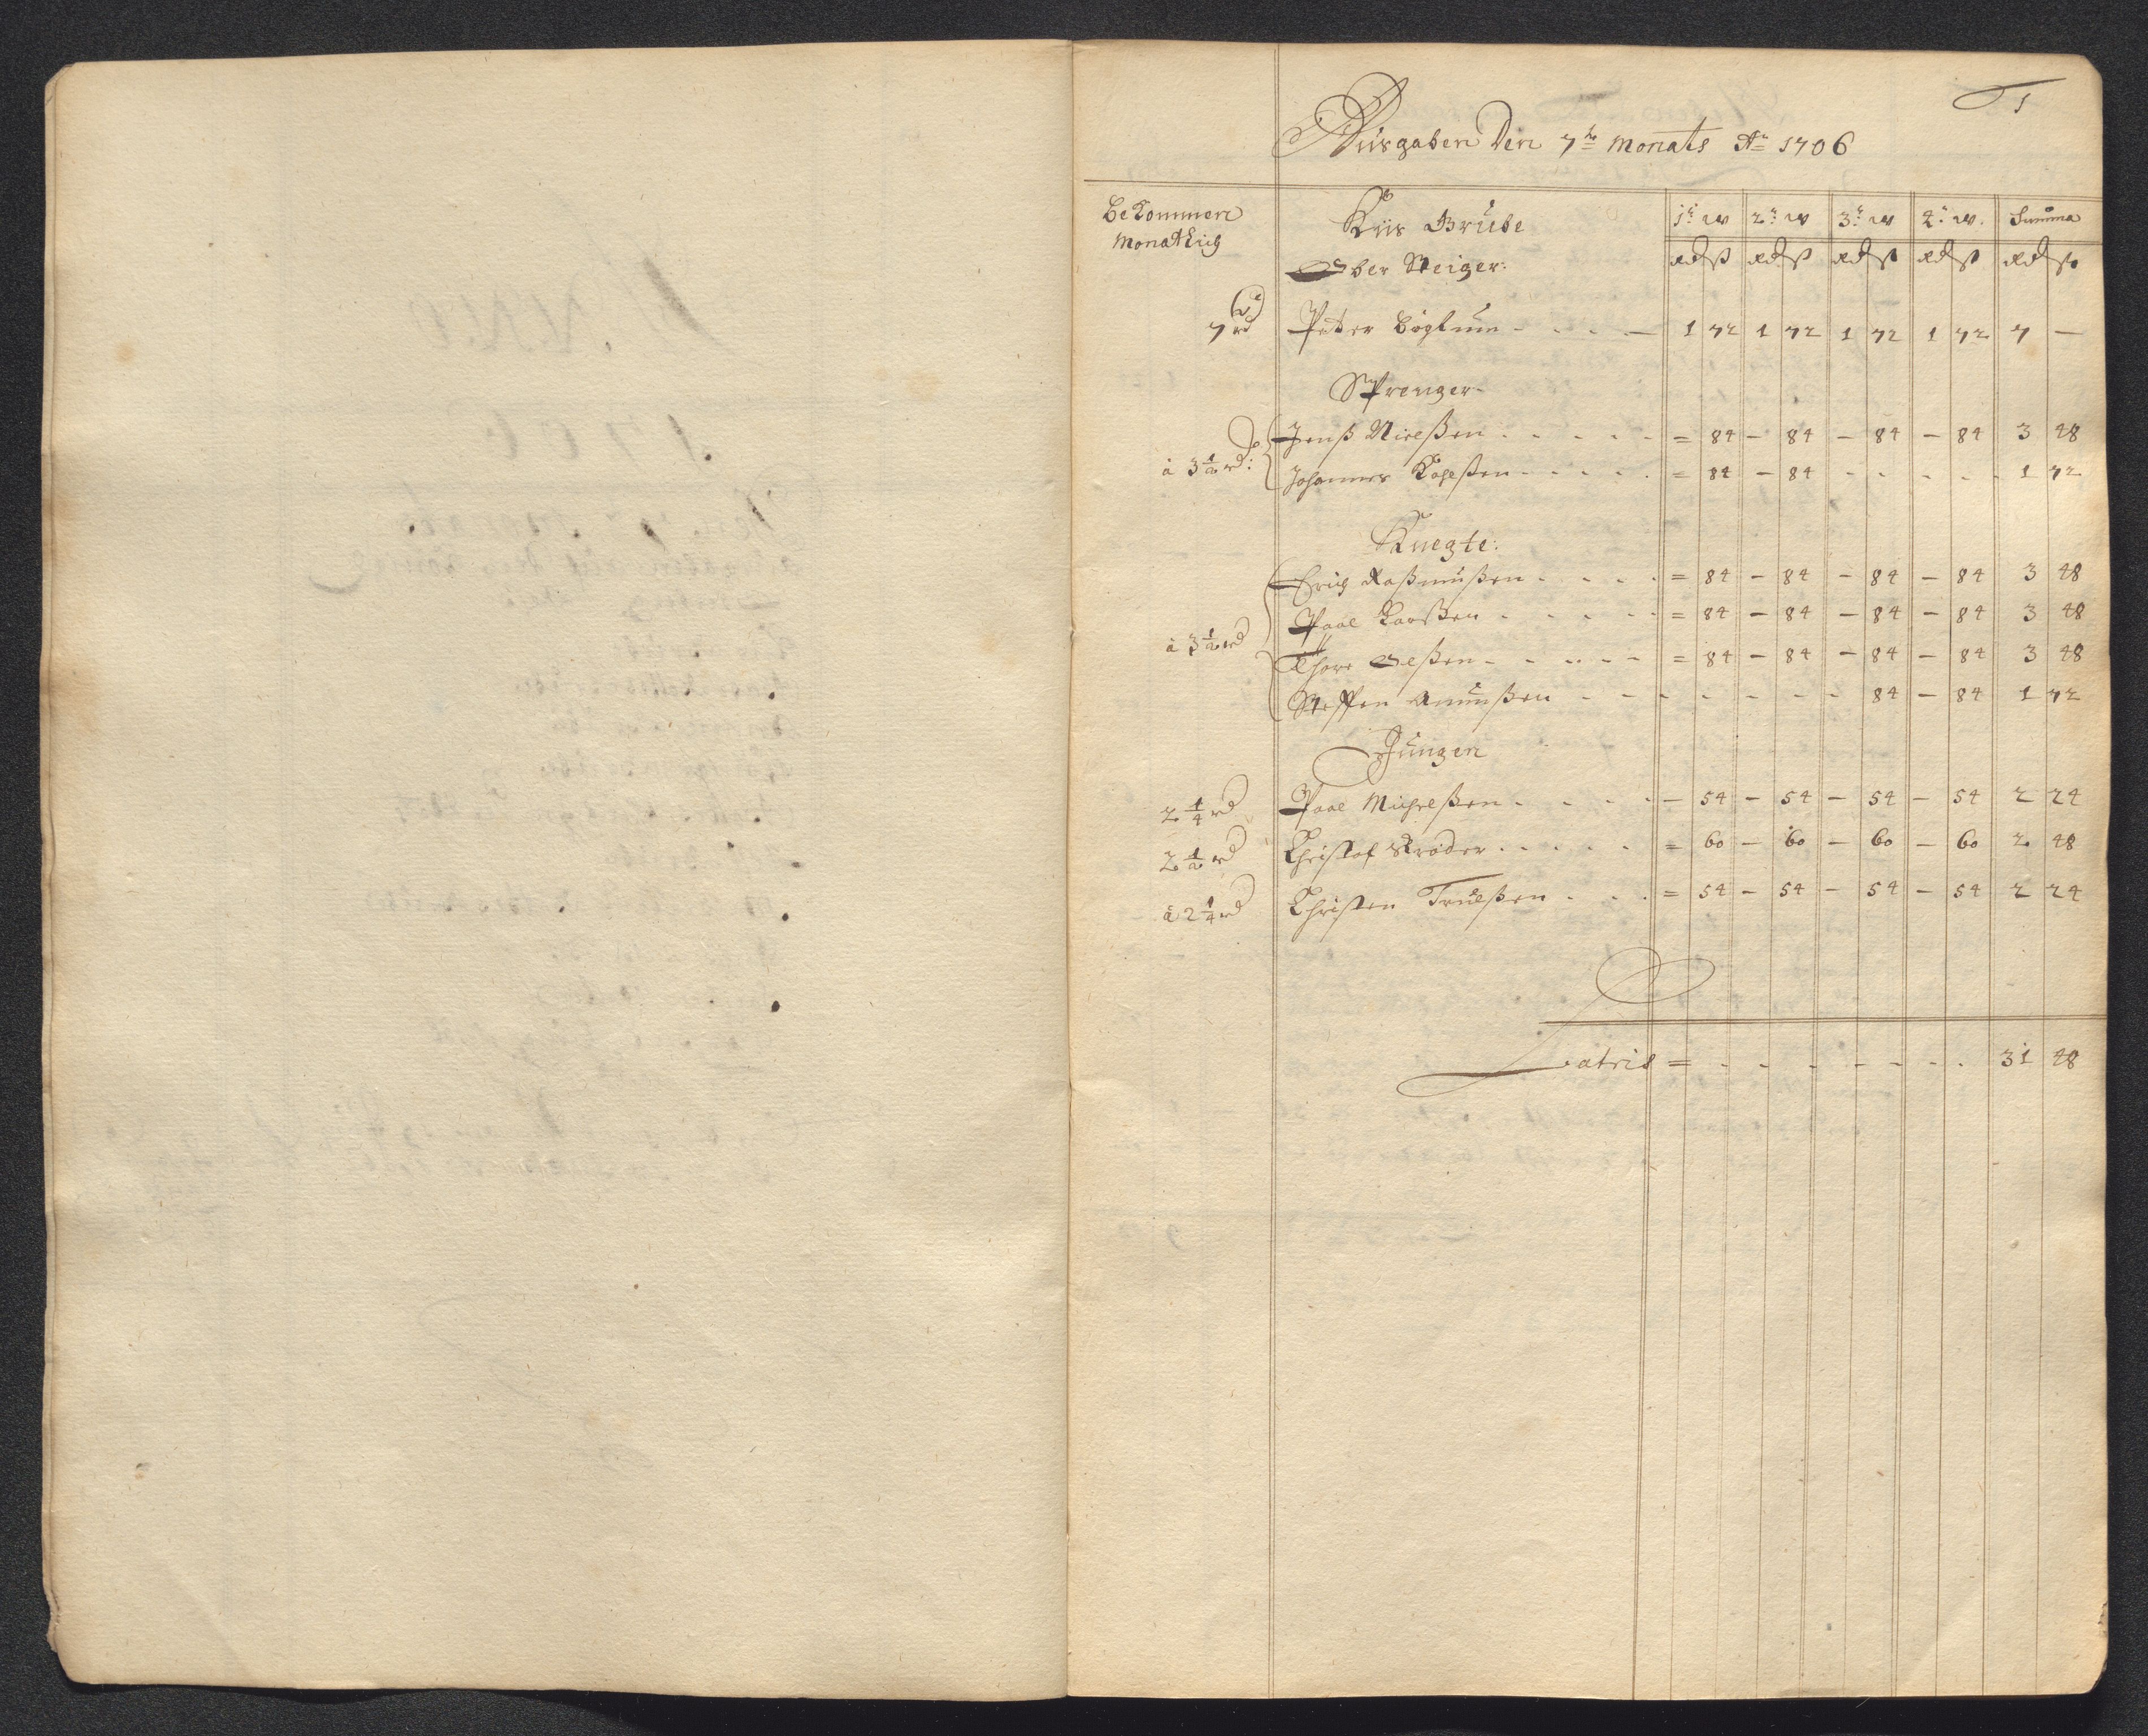 1
Ausgaben Den 7te Monats Ao 1706
Bekommen Monatlich
Kiis Grube
1te W 2te W 3te W 4te W. Summa
Ober Steiger:
Rd ß Rd ß Rd ß Rd ß Rd ß
7 rd Peter Böglum - - - - 1 72 1 72 1 72 1 72 7 -
Sprenger
à 3 1/2 rd: Jenß Nielßen - - - - = 84 - 84 - 84 - 84 3 48
Johannes - - - - = 84 - 84 - - - - 1 72
Knegte:
Erich Raßmußen - - - - = 84 - 84 - 84 - 84 3 48
à 3 1/2 rd Paal Larßen - - - - = 84 - 84 - 84 - 84 3 48
Thore Olßen - - - - = 84 - 84 - 84 - 84 3 48
Steffen Amunßen - - - - - - - 84 - 84 1 72
Jungen
2 1/4 rd Paal Michelßen - - - - - 54 - 54 - 54 - 54 2 24
2 1/2 rd Christof Skrøder - - - - = 60 - 60 - 60 - 60 2 48
à 2 1/4 rd Christen Truelßen - - - = 54 - 54 - 54 - 54 2 24
Latris = - - - - - - - 31 48